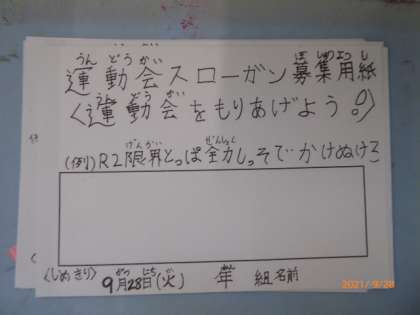 運動会スローガン募集用紙
〈運動会をもりあげよう!!〉
(例)R2限界とっぱ全力しっそでかけぬけろ
〈しめきり〉9月28日(火) 年 組 名前
2021/9/28